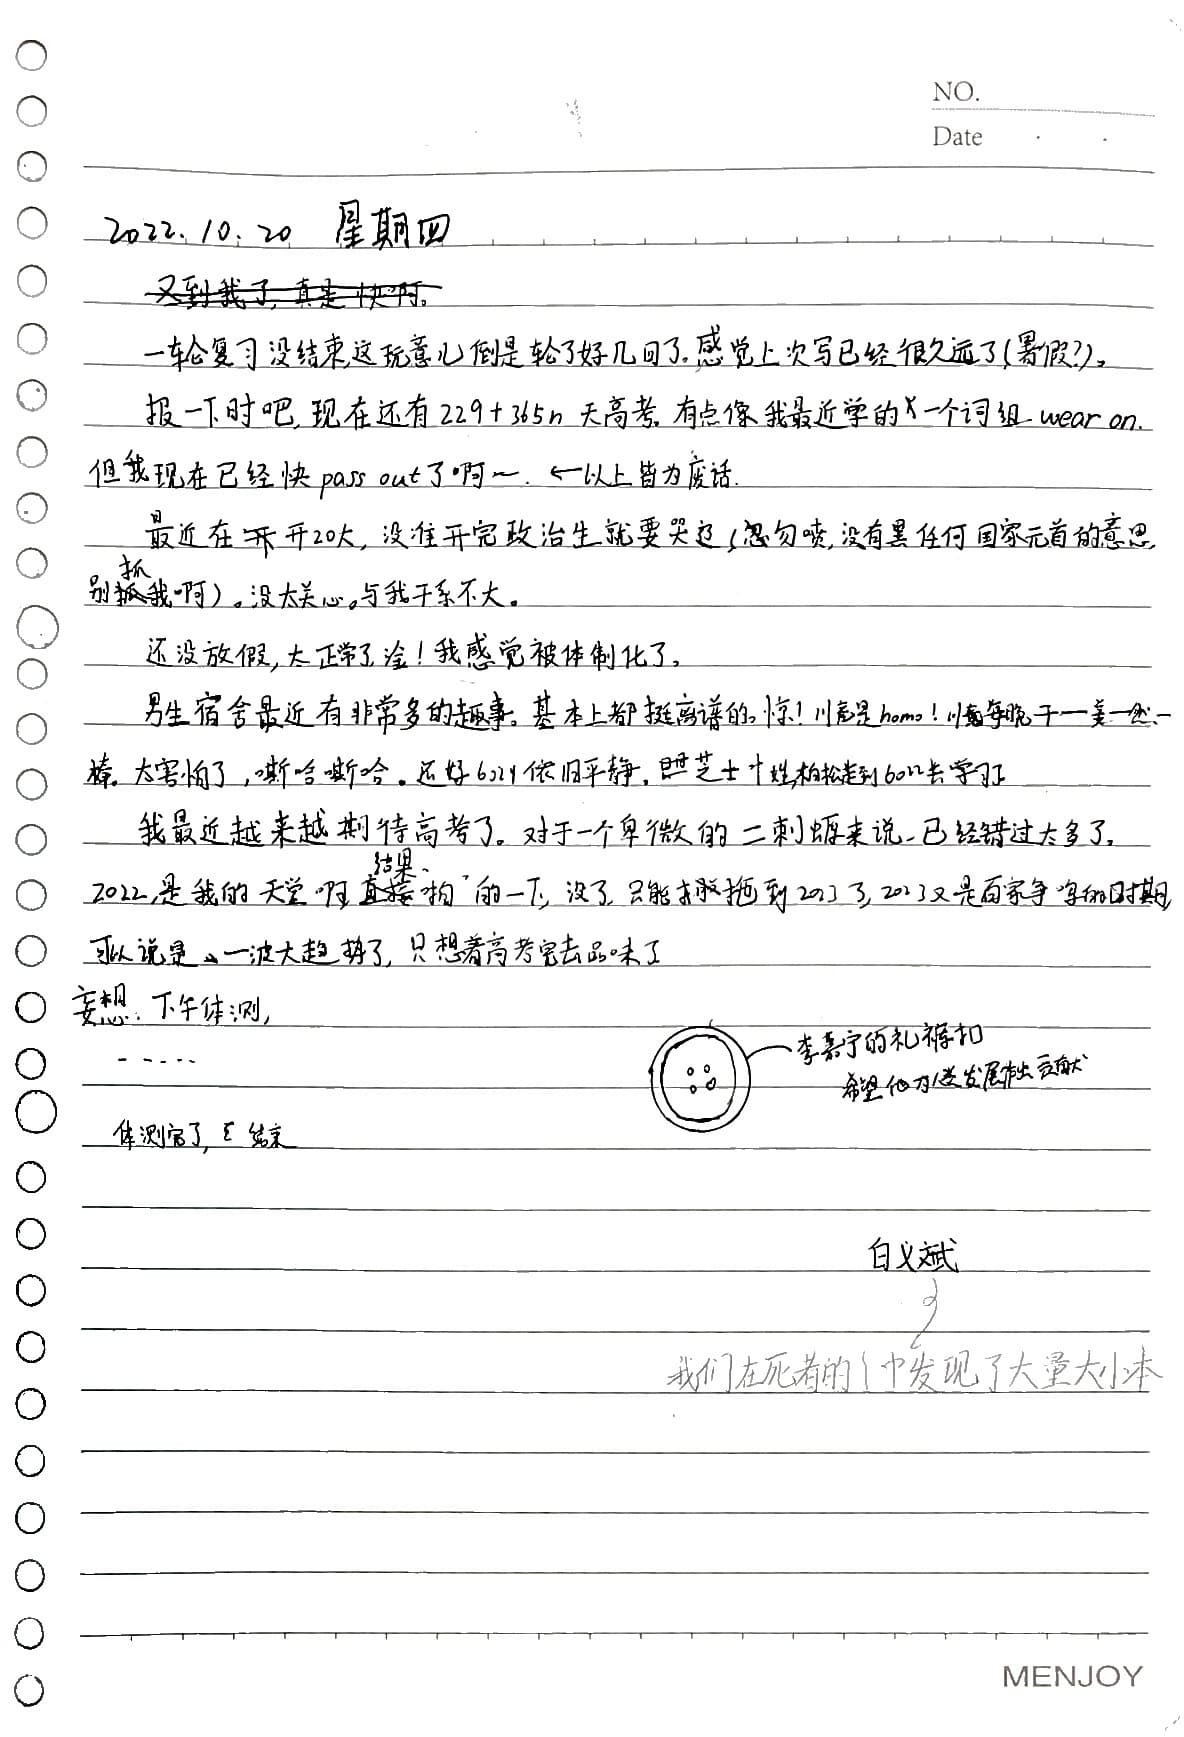 NO.
Date
2022.10.20 星期四
又到我了,真是快啊。
一轮复习没结束,这玩意儿倒是轮了好几回了。感觉上次写已经很久远了(暑假?)。
报一下时吧,现在还有229+365n天高考。有点像我最近学的一个词组 wear on.
但我现在已经快pass out了啊~. ←以上皆为废话.
最近在开20大,没准开完政治生就要哭这(忽勿喷,没有黑任何国家元首的意思,
别抓我啊)。没太关心。与我干系不大。
还没放假,太正常了淦!我感觉被体制化了。
男生宿舍最近有非常多的趣事。基本上都挺离谱的。惊! 是homo! 每晚干一
棒。太害怕了,嘶哈嘶哈。还好6224依旧平静。芝士 柏松走到6022去学习了
我最近越来越期待高考了。对于一个卑微的二刺螈来说,已经错过太多了。
2022,是我的天堂啊,结果"啪"的一下,没了,只能拖到2023了,2023又是百家争鸣的时期,
可以说是一波大趋势了,只想着高考完去品味了
妄想:下午体测,
-----
李嘉宁的礼裤扣
希望他为 发展作出贡献
体测完了, 结束
白义斌
我们在死者的 中发现了大量大小本
MENJOY